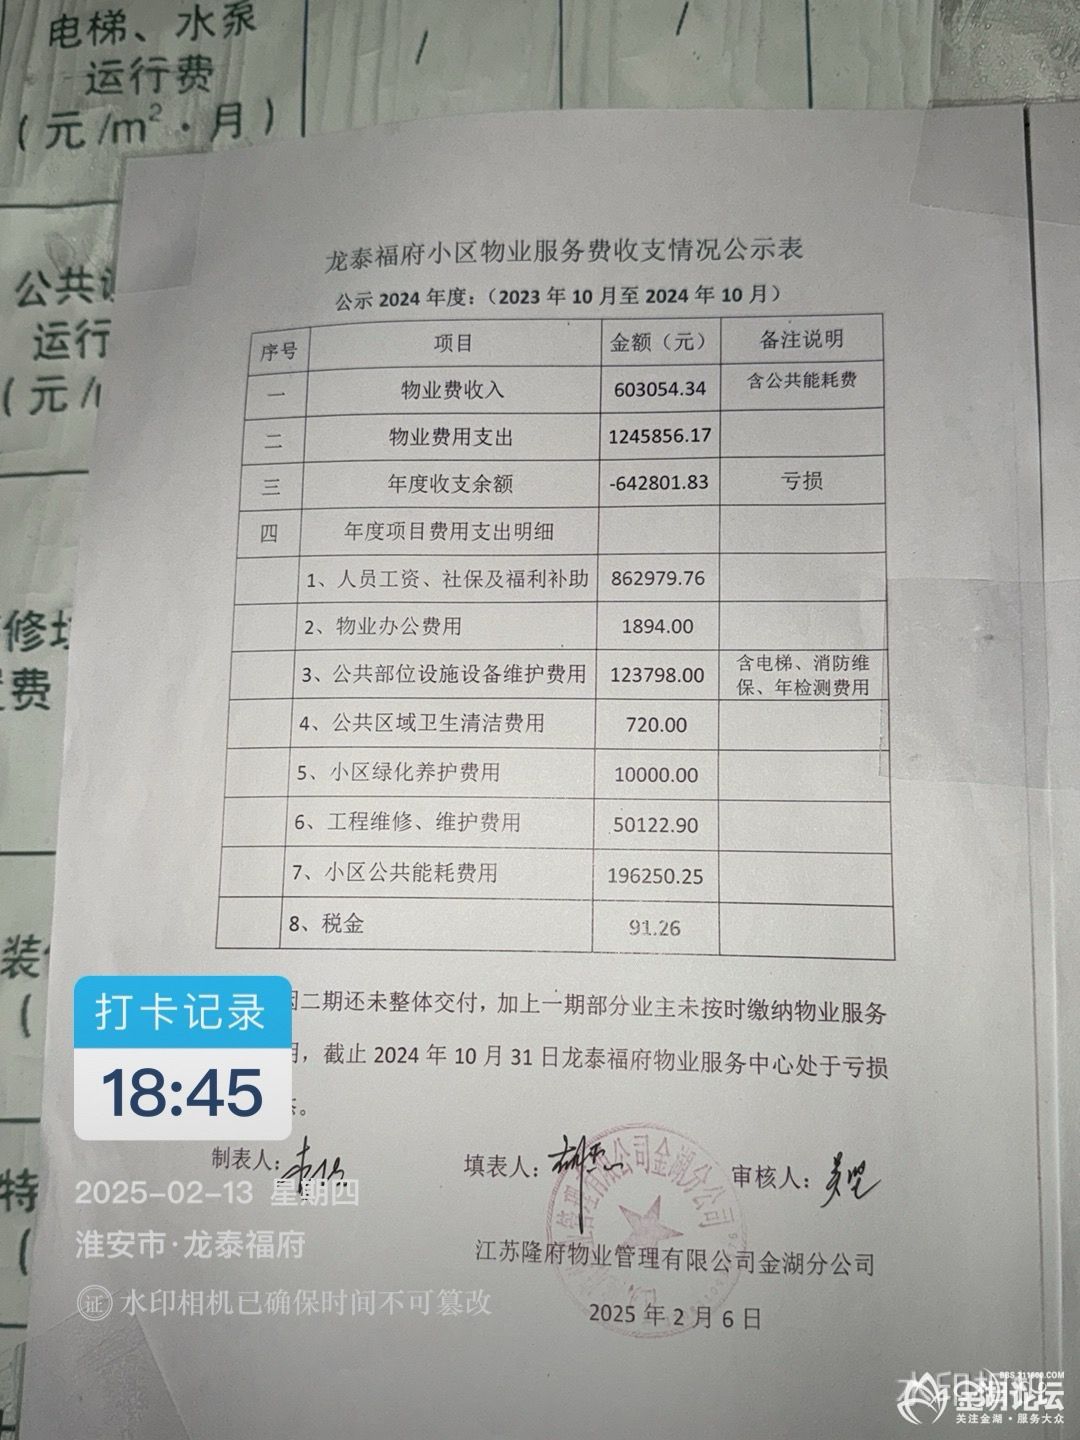 电梯、水泵
运行费
(元/m²·月)
/
/
公共
运行
(元/
修
费
装
(
特
(
龙泰福府小区物业服务费收支情况公示表
公示 2024 年度：（2023 年 10 月至 2024 年 10 月）
序号 项目 金额（元） 备注说明
一 物业费收入 603054.34 含公共能耗费
二 物业费用支出 1245856.17
三 年度收支余额 -642801.83 亏损
四 年度项目费用支出明细
1、人员工资、社保及福利补助 862979.76
2、物业办公费用 1894.00
3、公共部位设施设备维护费用 123798.00 含电梯、消防维
保、年检测费用
4、公共区域卫生清洁费用 720.00
5、小区绿化养护费用 10000.00
6、工程维修、维护费用 50122.90
7、小区公共能耗费用 196250.25
8、税金 91.26
因二期还未整体交付，加上一期部分业主未按时缴纳物业服务
，截止 2024 年 10 月 31 日龙泰福府物业服务中心处于亏损
。
制表人：
填表人：
审核人：
江苏隆府物业管理有限公司金湖分公司
2025 年 2 月 6 日
限公司金湖分公司
打卡记录
18:45
2025-02-13 星期四
淮安市·龙泰福府
证 水印相机已确保时间不可篡改
水印相机
BBS.211600.COM
金湖论坛
关注金湖·服务大众